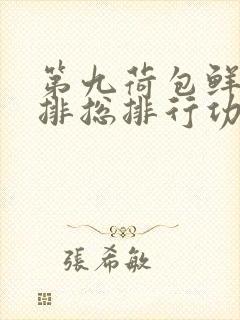 第九荷包鲜
排总排行功
張希敏